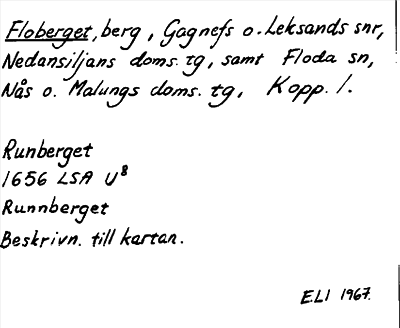 Floberget, berg, Gagnefs o. Leksands snr,
Nedansiljans doms. tg, samt Floda sn,
Nås o. Malungs doms. tg, Kopp. l.
Runberget
1656 LSA U⁸
Runnberget
Beskrivn. till kartan.
E.LI 1967.